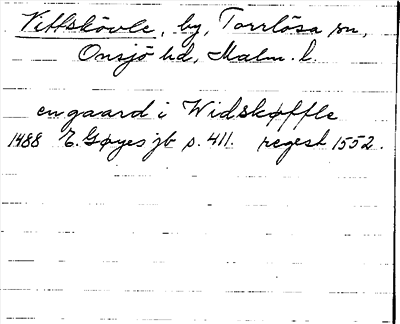 Vittskövle, by, Torrlösa sn,
Onsjö hd, Malm. l.
en gaard i Widskøffle
1488 E. Gøyes jb s. 411. regest 1552.